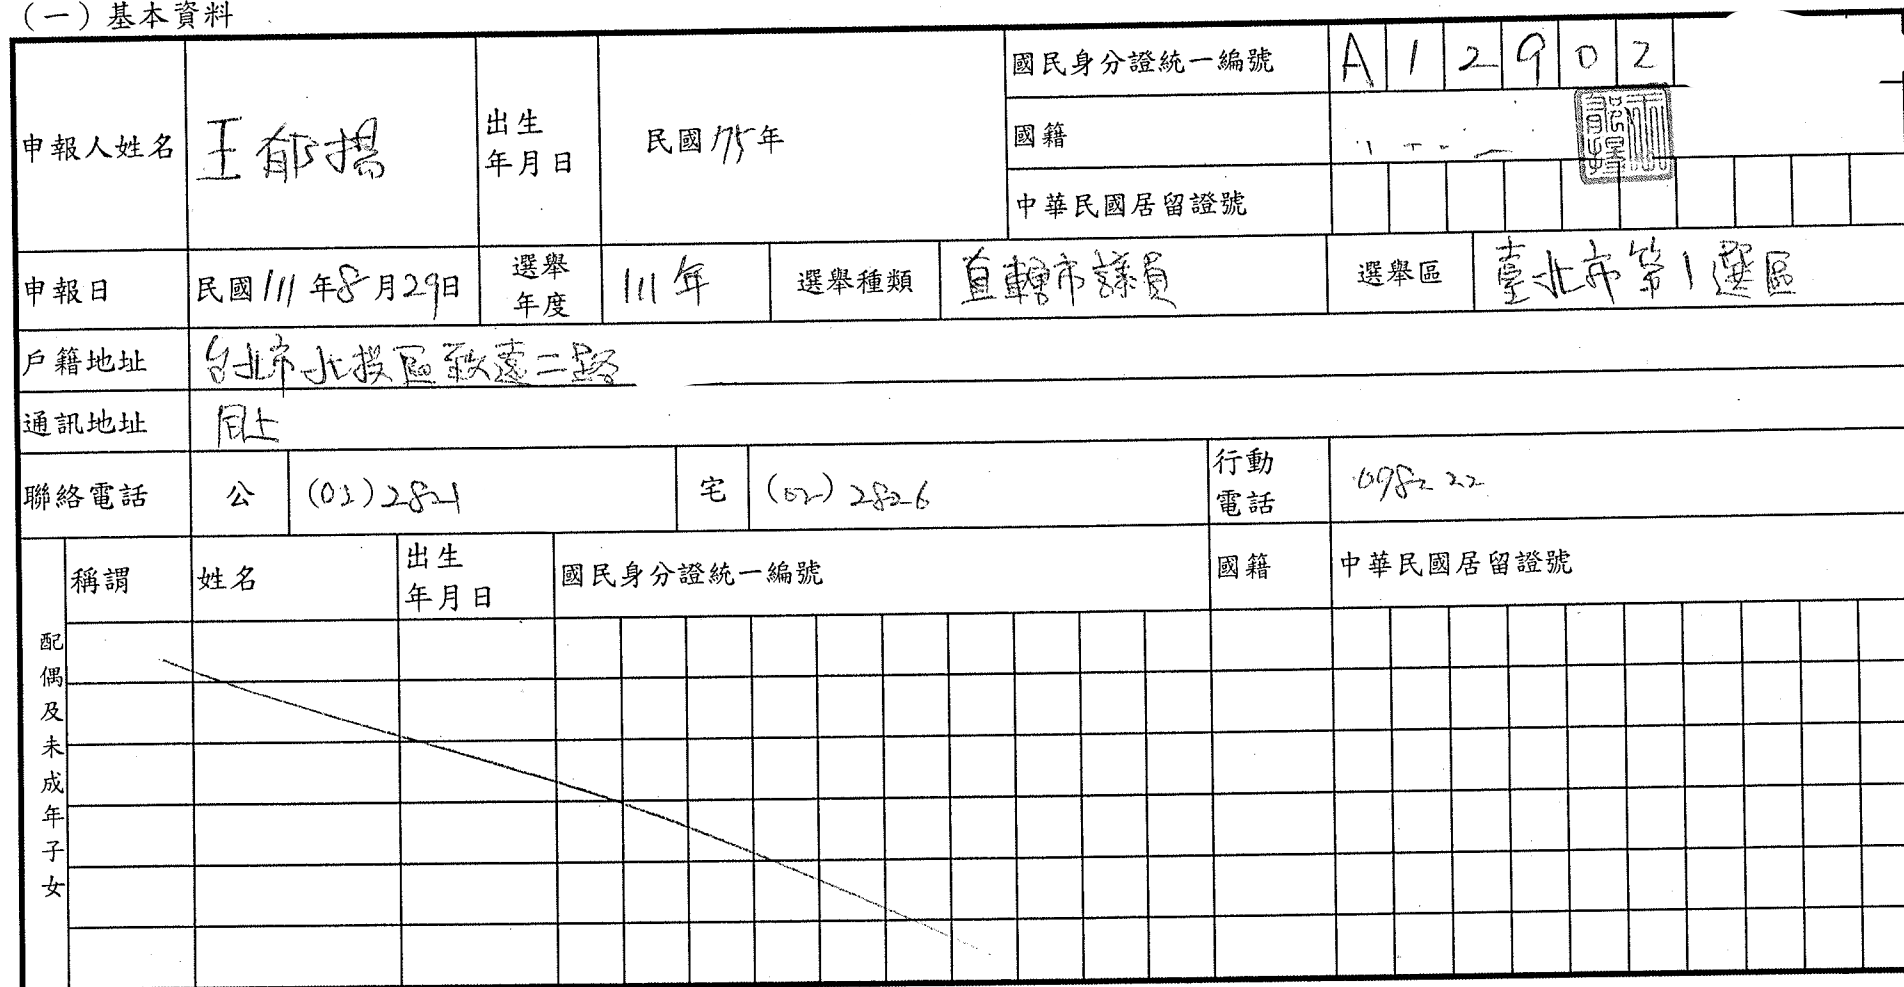 （一）基本資料
申報人姓名 王郁揚 出生年月日 民國75年 國民身分證統一編號 A12902
國籍
中華民國居留證號
申報日 民國111年8月29日 選舉年度 111年 選舉種類 直轄市議員 選舉區 臺北市第1選區
戶籍地址 台北市北投區致遠二路
通訊地址 同上
聯絡電話 公 (02)2821 宅 (02)2826 行動電話 0982 22
稱謂 姓名 出生年月日 國民身分證統一編號 國籍 中華民國居留證號
配偶及未成年子女